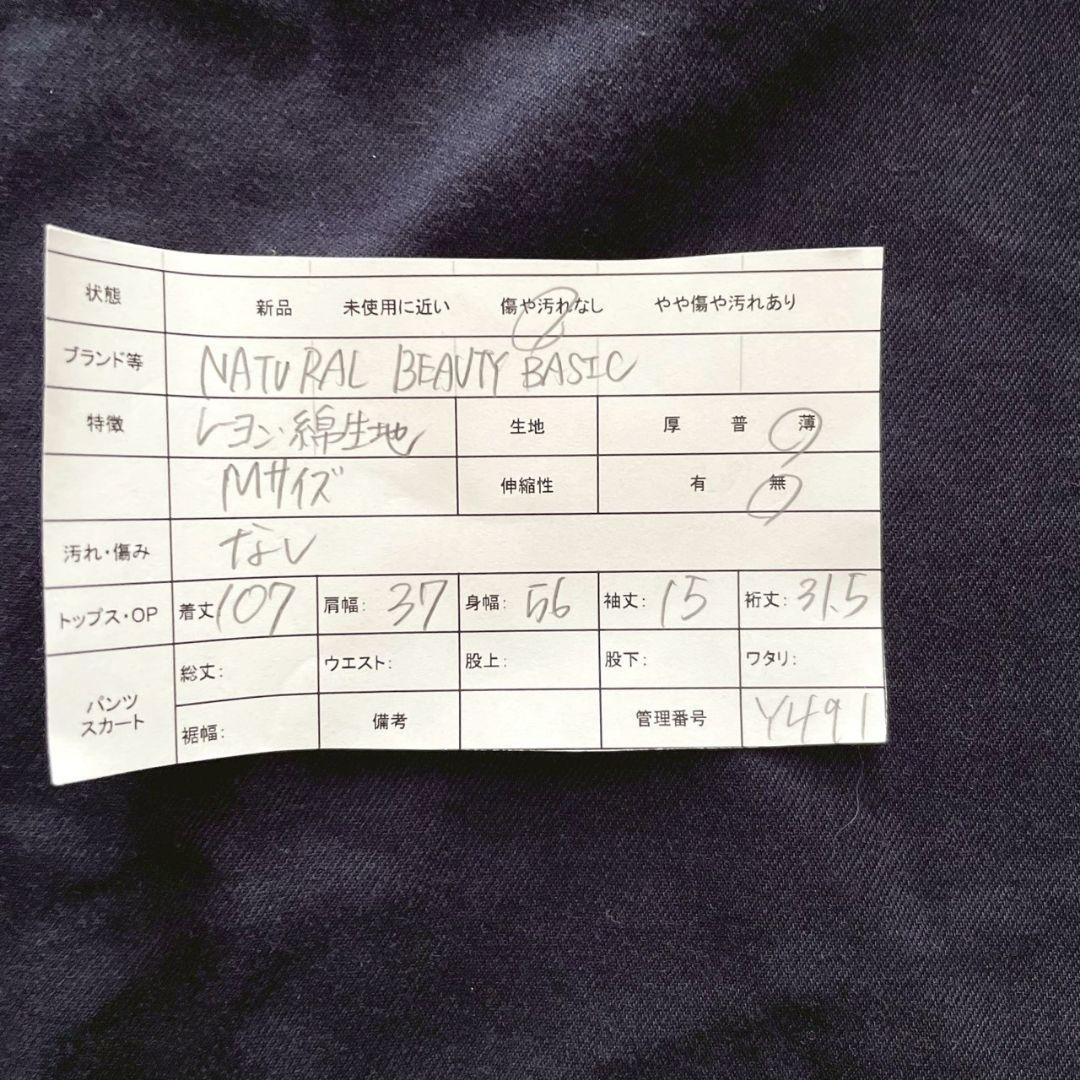 状態 新品 未使用に近い 傷や汚れなし やや傷や汚れあり
ブランド等 NATURAL BEAUTY BASIC
特徴 レヨン・綿生地 生地 厚 普 薄
Mサイズ 伸縮性 有 無
汚れ・傷み なし
トップス・OP 着丈107 肩幅: 37 身幅: 56 袖丈: 15 裄丈: 31.5
パンツ
スカート
総丈: ウエスト: 股上: 股下: ワタリ:
裾幅: 備考 管理番号 Y491